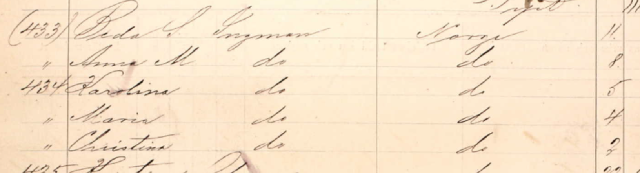 (433) Beda S. Ingman Norge 11
" Anna M do do 8
434 Karolina do do 5
" Maria do do 4
" Christina do do 2